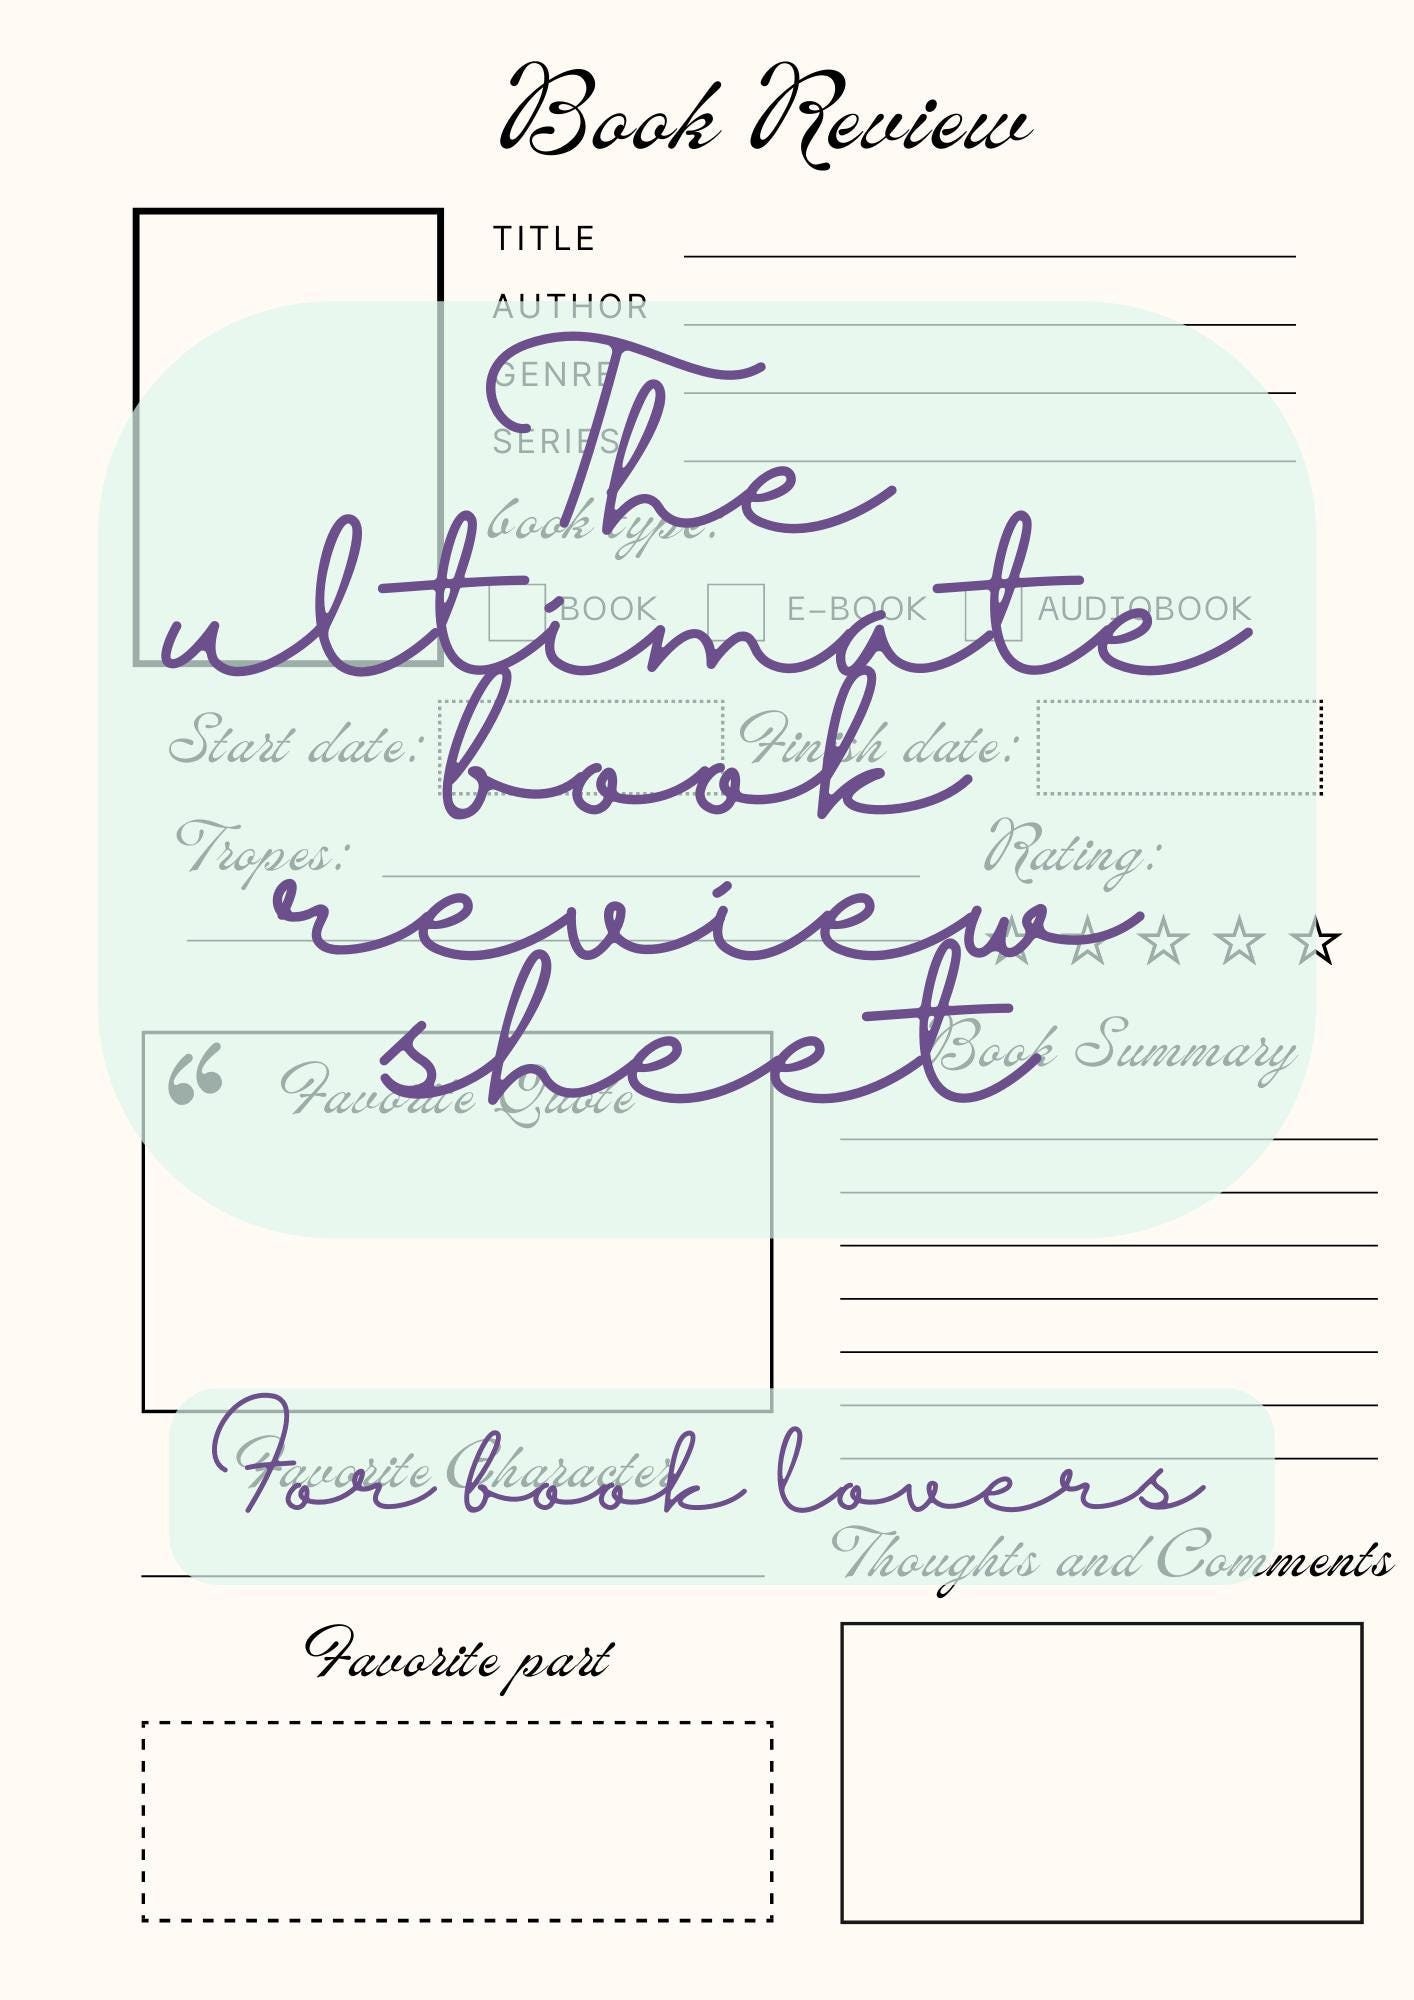 Book Review
TITLE
AUTHOR
GENRE
SERIES
book type:
BOOK E-BOOK AUDIOBOOK
Start date: Finish date:
Tropes: Rating:
Book Summary
“ Favorite Quote
Favorite Character
Thoughts and Comments
Favorite part
The
ultimate
book
review
sheet
For book lovers